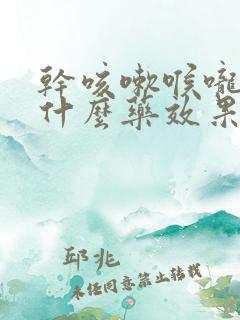 幹咳嗽喉嚨
什麼藥效果
邱兆
未经同意禁止转载